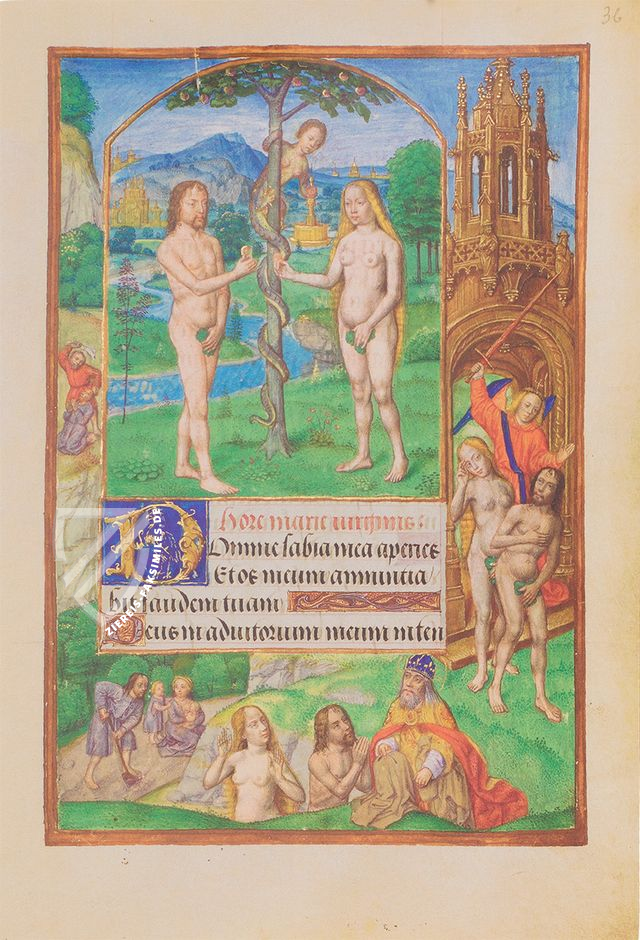 36
Hore marie virginis
Domine labia mea aperies
Et os meum annuncia
bit laudem tuam
Deus in adiutorium meum inten
ZIEREIS-FAKSIMILES.DE